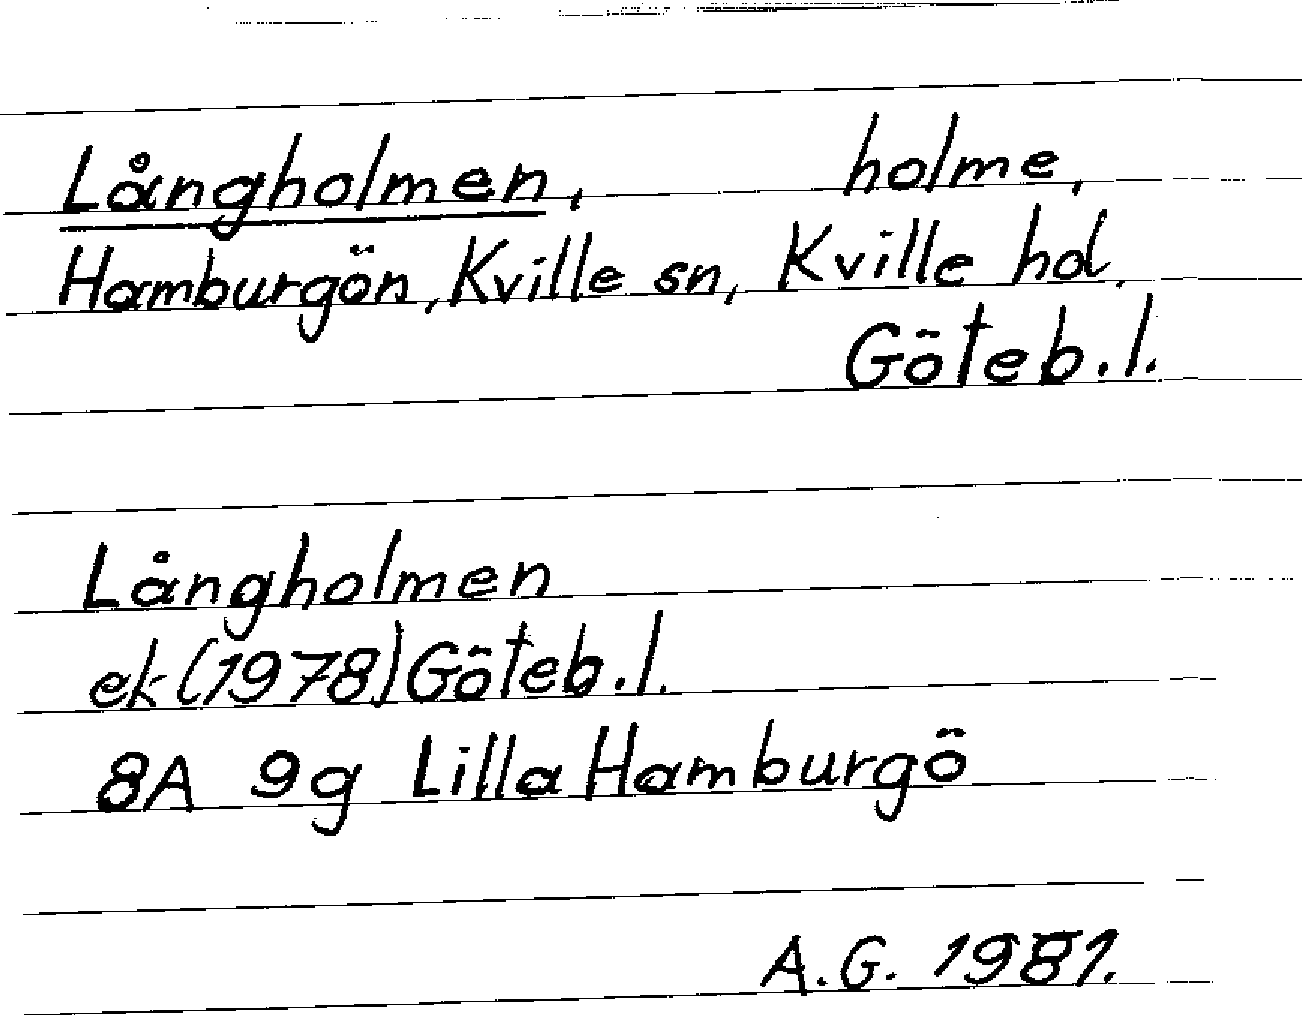 Långholmen, holme,
Hamburgön, Kville sn, Kville hd,
Göteb. l.
Långholmen
ek (1978) Göteb. l.
8A 9g Lilla Hamburgö
A.G. 1981.